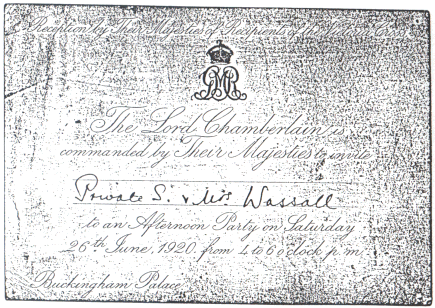 Reception by Their Majesties of Recipients of the Victoria Cross
The Lord Chamberlain is
commanded by Their Majesties to invite
Private S. & Mrs Wassall
to an Afternoon Party on Saturday
26th June, 1920, from 4 to 6 o'clock p.m.
Buckingham Palace